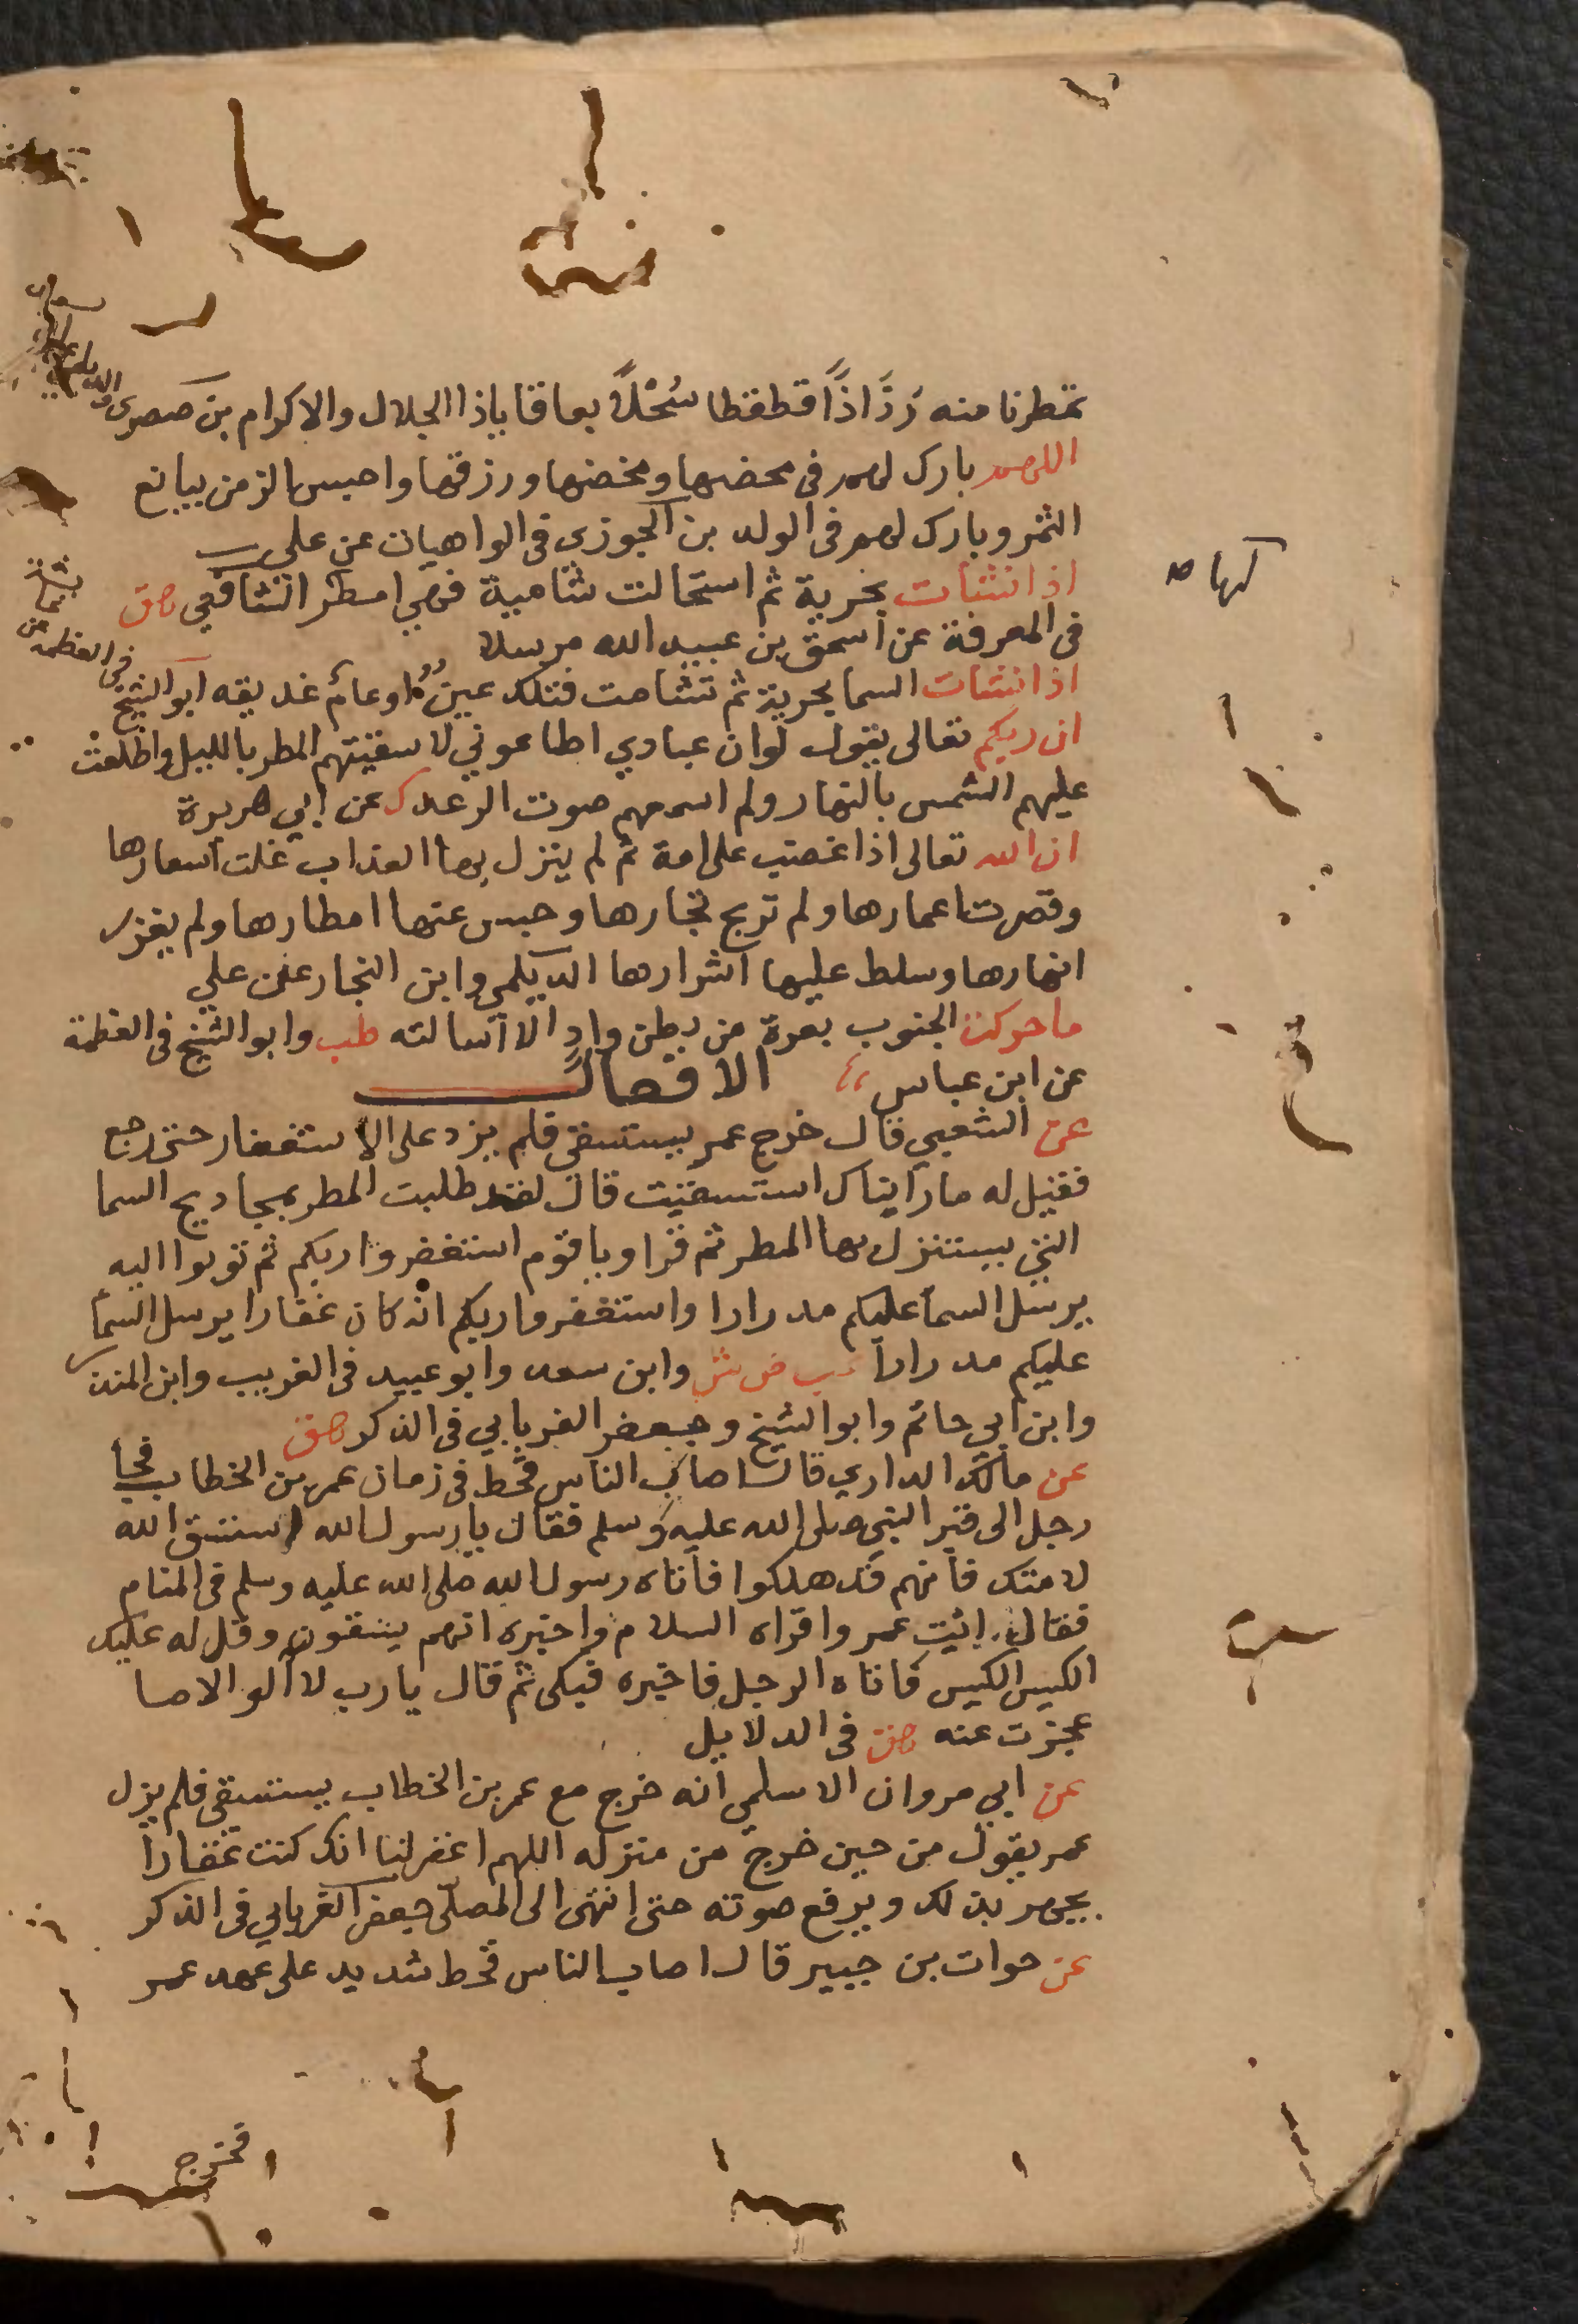 تمطرنا منه رَذَاذًا قطقطا سَجْلًا بعاقا ياذا الجلال والاكرام بن صصرى
اللهم بارك لهم فى محضها ومخضها ورزقها واحبس الزمن بيانع
الثمر وبارك لهم فى الولد بن الجوزى فى الواهيات عن على
اذا نشات بحرية ثم استحالت شامية فهي امطر الشافعي هق
فى المعرفة عن اسحق بن عبيد الله مرسلا
اذا نشات السما بحرية ثم تشامت فتلك عين اوعام غديقه ابو الشيخ
فى العظمة
ان ربكم تعالى يقول لوان عبادي اطاعوني لاسقيتهم المطر بالليل واطلعت
عليهم الشمس بالنهار ولم اسمعهم صوت الرعد ك عن ابي هريرة
ان الله تعالى اذا غضب على امة ثم لم ينزل بها العذاب غلت اسعارها
وقصرت اعمارها ولم تربح تجارها وحبس عنها امطارها ولم يغزر
انهارها وسلط عليها اشرارها الديلمي وابن النجار عن علي
ما حركت الجنوب بعرة من بطن واد الا اسالته طب وابو الشيخ فى العظمة
عن ابن عباس
الافعال
عن الشعبي قال خرج عمر يستسقى فلم يزد على الاستغفار حتى رجع
فقيل له ما رايناك استسقيت قال لقد طلبت المطر بمجاديح السما
التي يستنزل بها المطر ثم قرا ويا قوم استغفروا ربكم ثم توبوا اليه
يرسل السما عليكم مدرارا واستغفروا ربكم انه كان غفارا يرسل السما
عليكم مدرارا عب ص ش وابن سعد وابو عبيد فى الغريب وابن المنذر
وابن ابي حاتم وابو الشيخ وجعفر الفريابي فى الذكر هق
عن مالك الداري قال اصاب الناس قحط فى زمان عمر بن الخطاب فجا
رجل الى قبر النبي صلى الله عليه وسلم فقال يا رسول الله استسق الله
لامتك فانهم قد هلكوا فاتاه رسول الله صلى الله عليه وسلم فى المنام
فقال ائيت عمر واقراه السلام واخبره انهم يسقون وقل له عليك
الكيس الكيس فاتاه الرجل فاخبره فبكى ثم قال يا رب لا الو الا ما
عجزت عنه هق فى الدلايل
عن ابي مروان الاسلمي انه خرج مع عمر بن الخطاب يستسقى فلم يزل
عمر يقول من حين خرج من منزله اللهم اغفر لنا انك كنت غفارا
يجهر بذلك ويرفع صوته حتى انتهى الى المصلى جعفر الفريابي فى الذكر
عن حوات بن جبير قال اصاب الناس قحط شديد على عهد عمر
فخرج